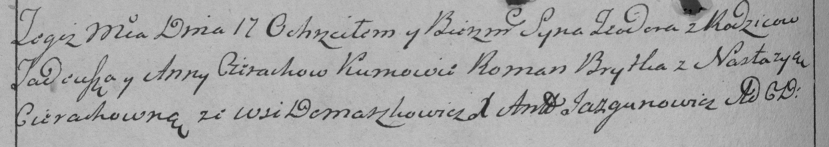 Tegiż Mca Dnia 17 Ochrzciłem y Bierzm Syna Teodora z Rodzicow
Tadeusza y Anny Cierachow Kumowie Roman Brytka z Nastazyą
Cierachowną ze wsi Domaszkowicz X Ant Jazgunowicz AD CD: